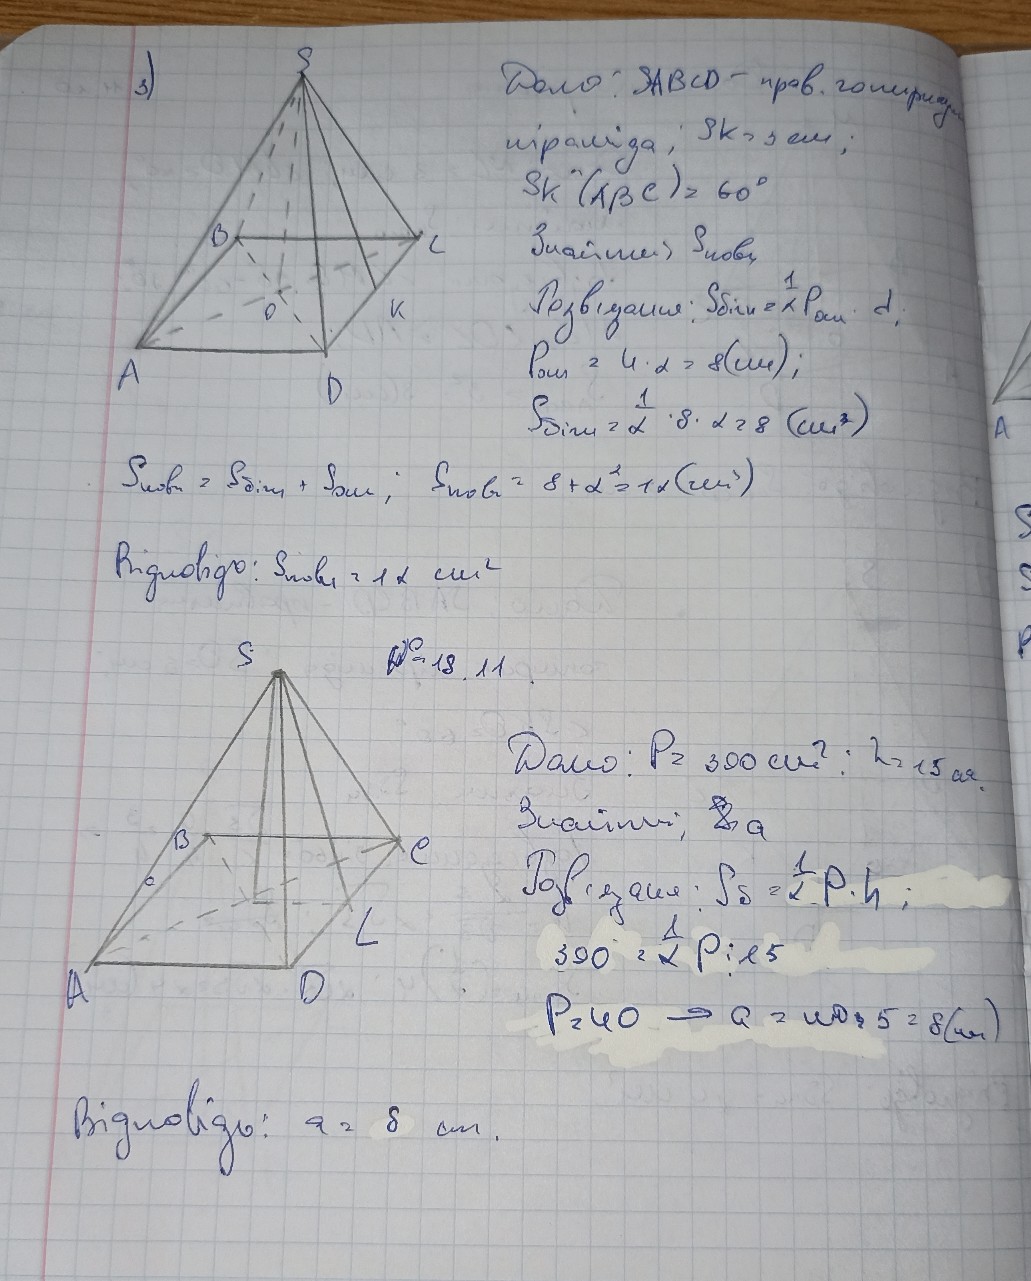 3)
S
Дано: SABCD – прав. чотирикутн
піраміда; SK = 3 см;
SK^(ABC) = 60°
B
C
Знайти: Sповн
O
K
Розвізання: Sбічн = 1/2 Pосн · d;
A
D
Pосн = 4 · 2 = 8(см);
Sбічн = 1/2 · 8 · 2 = 8 (см²)
Sповн = Sбічн + Sосн; Sповн = 8 + 2² = 12(см²)
Відповідь: Sповн = 12 см²
S
№ 18.11.
Дано: P = 300 см²; h = 15 см.
B
C
Знайти; a
Розвізання: Sб = 1/2 P · h;
L
300 = 1/2 P · 15
A
D
P = 40 → a = 40 : 5 = 8(см)
Відповідь: a = 8 см.
A
S
S
P